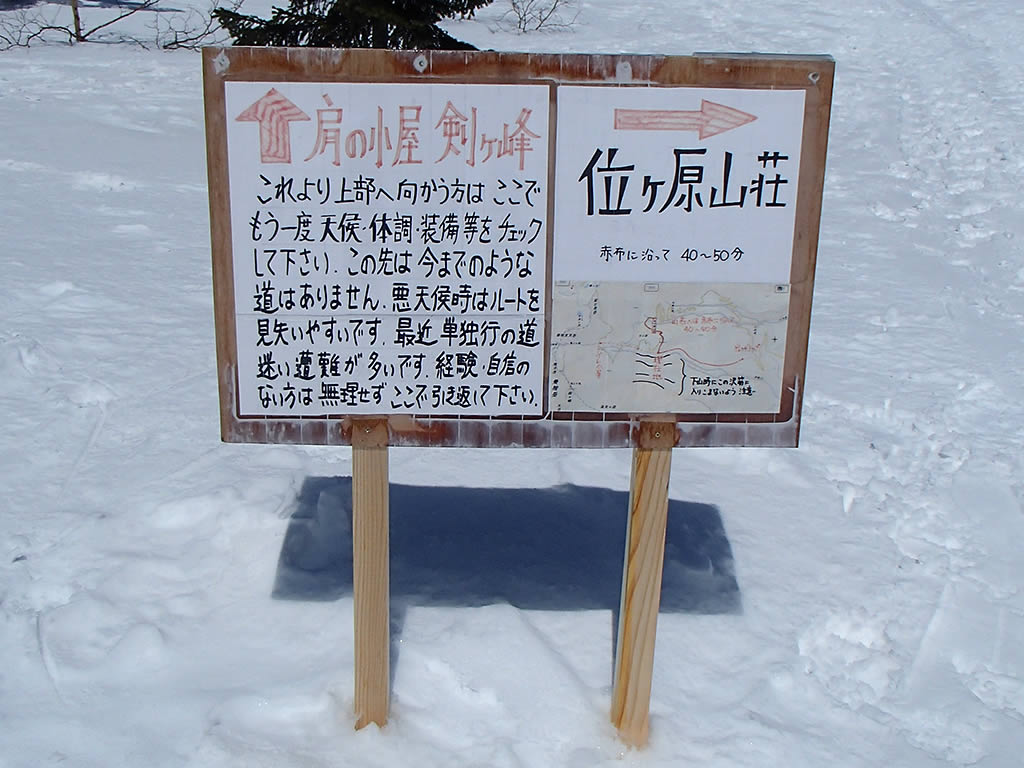 肩の小屋 剣ヶ峰
これより上部へ向かう方は ここで
もう一度 天候・体調・装備等をチェック
して下さい. この先は 今までのような
道はありません. 悪天候時はルートを
見失いやすいです. 最近 単独行の道
迷い遭難が多いです. 経験・自信の
ない方は無理せず ここで引き返して下さい.
位ヶ原山荘
赤布に沿って 40〜50分
40〜50分
下山時にこの沢筋に
入りこまないよう注意